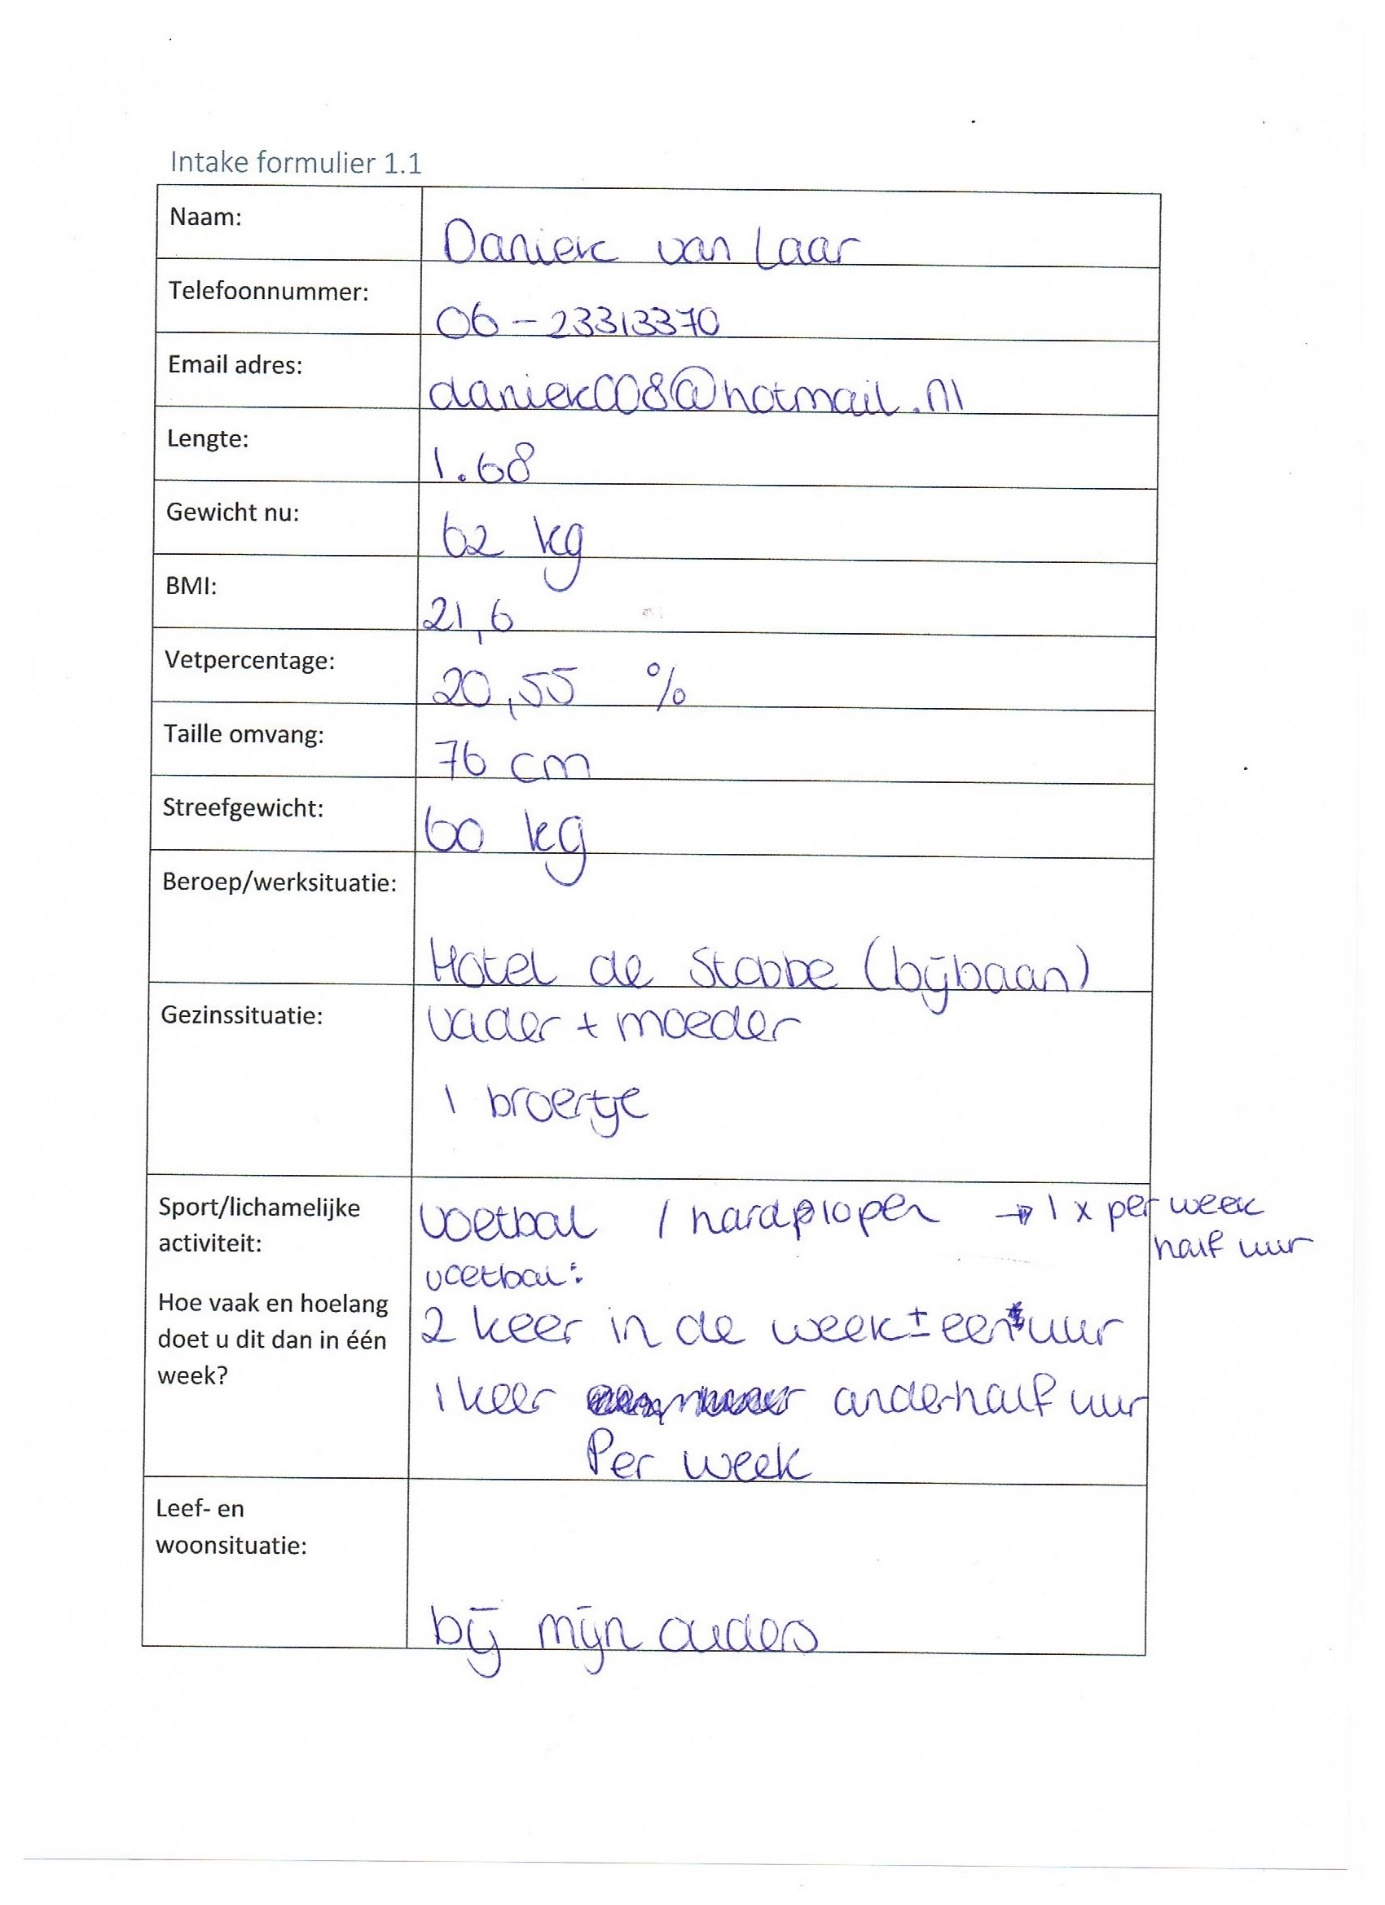 Intake formulier 1.1
Naam:
Daniek van Laar
Telefoonnummer:
06 - 23313370
Email adres:
daniek008@hotmail.nl
Lengte:
1.68
Gewicht nu:
62 kg
BMI:
21,6
Vetpercentage:
20,55 %
Taille omvang:
76 cm
Streefgewicht:
60 kg
Beroep/werksituatie:
Hotel de Stobbe (bijbaan)
Gezinssituatie:
vader + moeder
1 broertje
Sport/lichamelijke
activiteit:
Hoe vaak en hoelang
doet u dit dan in één
week?
voetbal / hardplopen → 1 x per week
half uur
voetbal:
2 keer in de week ± een uur
1 keer anderhalf uur
Per week
Leef- en
woonsituatie:
bij mijn ouders